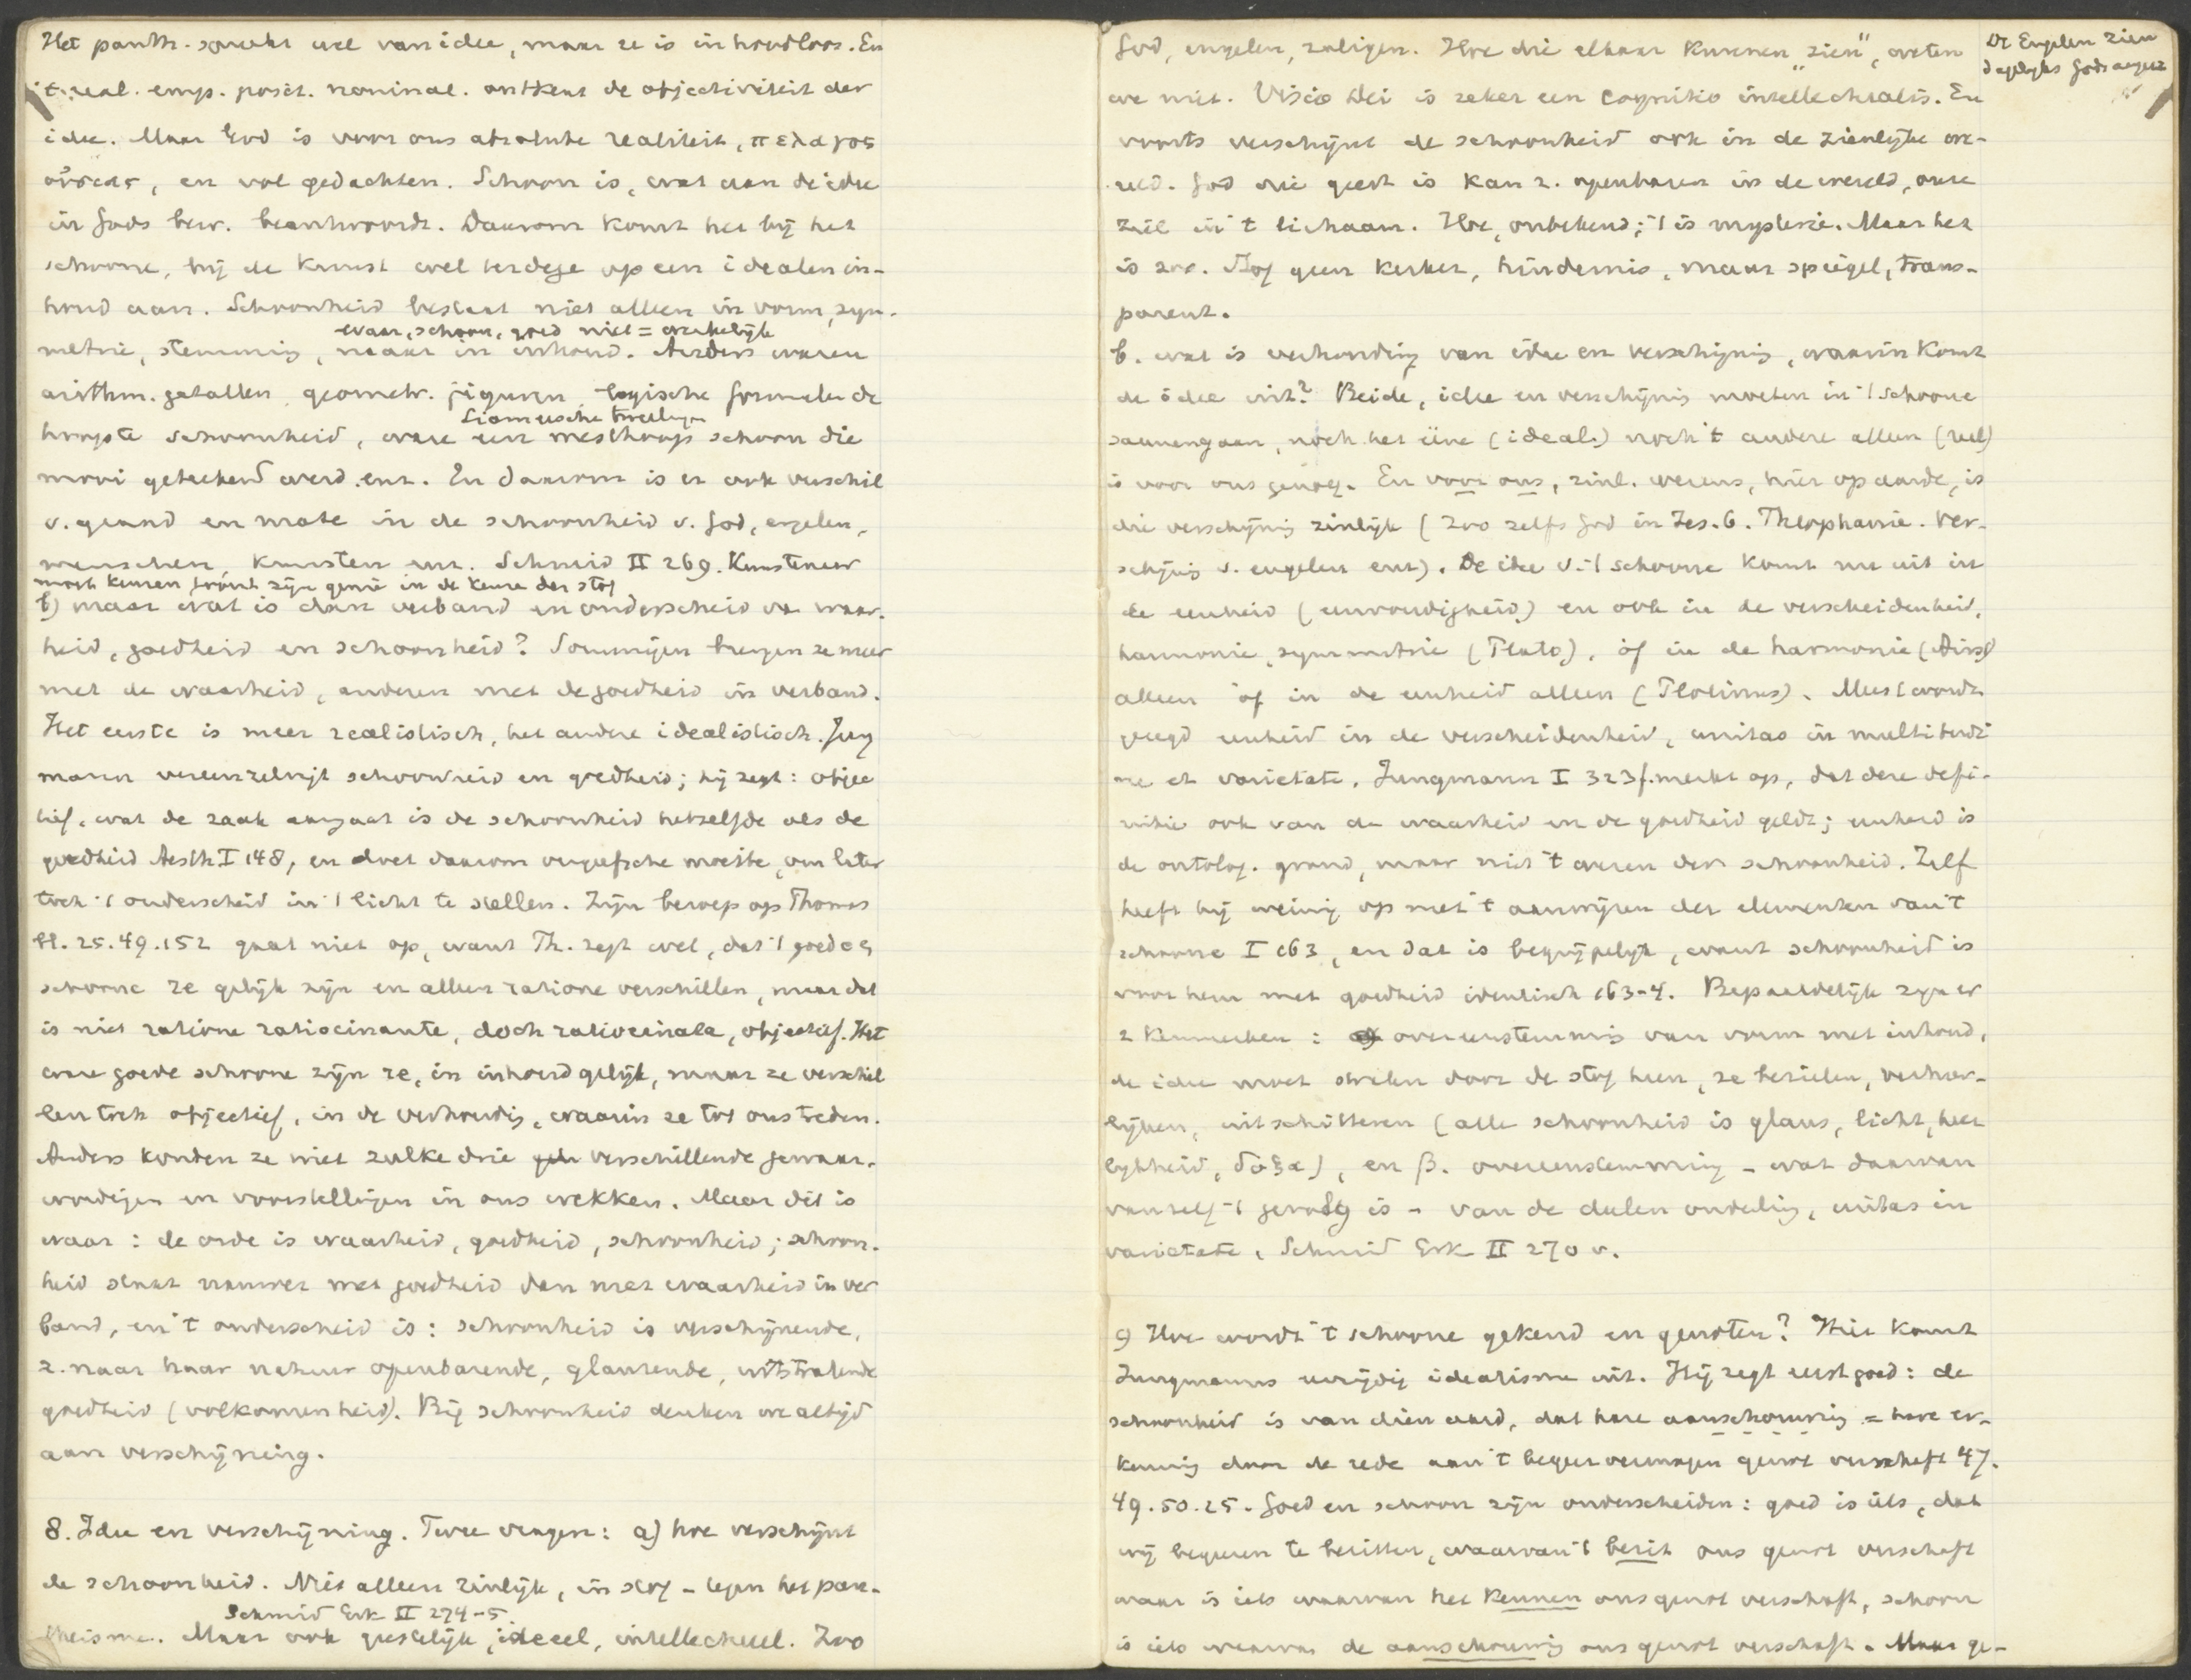 Het panth. spreekt wel van idee, maar ze is inhoudloos. En
't real. emp. posit. nominal. ontkent de objectiviteit der
idee. Maar God is voor ons absolute realiteit, πελαγος
οὐσιας, en vol gedachten. Schoon is, wat aan de idee
in Gods bew. beantwoordt. Daarom komt het bij het
schoone, bij de kunst wel terdege op een idealen in-
houd aan. Schoonheid bestaat niet alleen in vorm, sym-
waar, schoon, goed niet = werkelijk
metrie, stemming, maar in inhoud. Anders waren
arithm. getallen, geometr. figuren, logische formules de
Siameesche tweelingen
hoogste schoonheid, ware een mesthoop schoon die
mooi geteekend werd enz. En daarom is er ook verschil
v. graad en mate in de schoonheid v. God, engelen,
menschen, kunsten enz. Schmid II 269. Kunstenaar
moet keuren, toont zijn genie in de keuze der stof
b) maar wat is dan verband en onderscheid van waar-
heid, goedheid en schoonheid? Sommigen brengen ze meer
met de waarheid, anderen met de goedheid in verband.
Het eerste is meer realistisch, het andere idealistisch. Jung
mann vereenzelvigt schoonheid en goedheid; hij zegt: objec
tief, wat de zaak aangaat is de schoonheid hetzelfde als de
goedheid Aesth I 148, en doet daarom vergeefsche moeite, om later
toch 't onderscheid in 't licht te stellen. Zijn beroep op Thomas
bl. 25.49.152 gaat niet op, want Th. zegt wel, dat 't goede en
schoone re gelijk zijn en alleen ratione verschillen, maar dat
is niet ratione ratiocinante, doch ratiocinata, objectief. Het
ware goede schoone zijn re, in inhoud gelijk, maar ze verschil
len toch objectief, in de verhouding, waarin ze tot ons treden.
Anders konden ze niet zulke drie verschillende gewaar-
wordingen en voorstellingen in ons wekken. Maar dit is
waar: de orde is waarheid, goedheid, schoonheid; schoon-
heid staat nauwer met goedheid dan met waarheid in ver
band, en 't onderscheid is: schoonheid is verschijnende,
z. naar haar natuur openbarende, glanzende, uitstralende
goedheid (volkomenheid). Bij schoonheid denken we altijd
aan verschijning.
8. Idee en verschijning. Twee vragen: a) hoe verschijnt
de schoonheid. Niet alleen zinlijk, in stof – tegen het pan-
Schmid Erk II 274-5
theisme. Maar ook geestelijk, ideëel, intellectueel. Zoo
God, engelen, zaligen. Hoe die elkaar kunnen „zien", weten
De Engelen zien
dagelijks Gods aangez
we niet. Visio Dei is zeker een cognitio intellectualis. En
voorts verschijnt de schoonheid ook in de zienlijke we-
reld. God die geest is kan z. openbaren in de wereld, onze
ziel in 't lichaam. Hoe, onbekend; 't is mysterie. Maar het
is zoo. Stof geen kerker, hindernis, maar spiegel, trans-
parent.
b. wat is verhouding van idee en verschijning, waarin komt
de idee uit? Beide, idee en verschijning moeten in 't schoone
samengaan, noch het ééne (ideal.) noch 't andere alleen (reel)
is voor ons genoeg. En voor ons, zinl. wezens, hier op aarde, is
die verschijning zinlijk (zoo zelfs God in Jes. 6. Theophanie. Ver-
schijning v. engelen enz). De idee v. 't schoone komt nu uit in
de eenheid (eenvoudigheid) en ook in de verscheidenheid,
harmonie, symmetrie (Plato), òf in de harmonie (Arist)
alleen òf in de eenheid alleen (Plotinus). Meest wordt
gezegd eenheid in de verscheidenheid, unitas in multitudi
ne et varietate. Jungmann I 323 f. merkt op, dat deze defi-
nitie ook van de waarheid en de goedheid geldt; eenheid is
de ontolog. grond, maar niet 't wezen der schoonheid. Zelf
heeft hij weinig op met 't aanwijzen der elementen van 't
schoone I 163, en dat is begrijpelijk, want schoonheid is
voor hem met goedheid identisch 163-4. Bepaaldelijk zijn er
2 kenmerken: overeenstemming van vorm met inhoud,
de idee moet stralen door de stof heen, ze bezielen, verheer-
lijken, uitschitteren (alle schoonheid is glans, licht, heer
lijkheid, δοξα), en β. overeenstemming – wat daarvan
vanzelf 't gevolg is – van de delen onderling, unitas in
varietate, Schmid Erk II 270 v.
9 Hoe wordt 't schoone gekend en genoten? Hier komt
Jungmanns eenzijdig idealisme uit. Hij zegt eerst goed: de
schoonheid is van dien aard, dat hare aanschouwing = hare er-
kenning door de rede aan 't begeervermogen genot verschaft 47.
49.50.25. Goed en schoon zijn onderscheiden: goed is iets, dat
wij begeeren te bezitten, waarvan 't bezit ons genot verschaft
waar is iets waarvan het kennen ons genot verschaft, schoon
is iets waarvan de aanschouwing ons genot verschaft. Maar ge-